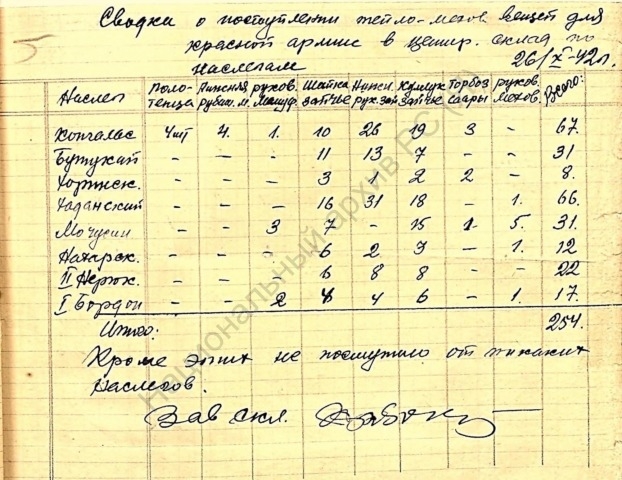 Сводка о поступлении тепло-мехов вещей для
красной армие в центр. склад по
наслегам 26/X-42г.
Наслег Поло-тенца Нижняя рубаш. м. руков. Мануф. Шапка заячье Нижн. рук. зая заячье Торбоз сары руков. мехов. Всего:
Хонгалас 4шт 4. 1. 10 26 19 3 - 67.
Бутукай - - - 11 13 7 - - 31
Хоринск. - - - 3 1 2 2 - 8.
Хаданский - - - 16 31 18 - 1. 66.
Мочусин - - 3 7 - 15 1. 5. 31.
Нахарск. - - - 6 2 3 - 1. 12
II Нерюк. - - - 6 8 8 - - 22
I Бордон - - 2 4 4 6 - 1. 17.
Итого: 254.
Кроме этих не поступило от никаких
наслегов.
Зав скл.
Национальный архив РС (Я)